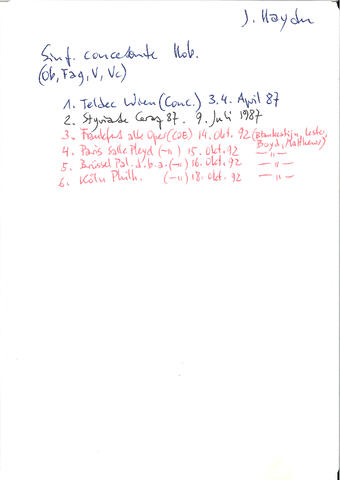 J. Haydn
Sinf. concertante Hob.
(Ob, Fag, V, Vc)
1. Teldec Wien (Conc.) 3.4. April 87
2. Styriarte Graz 87. 9. Juli 1987
3. Frankfurt alte Oper (COE) 14. Okt. 92 (Blankestijn, Lester,
Boyd, Matthews)
4. Paris Salle Pleyel (-"-) 15. Okt. 92 -"-
5. Brüssel Pal. d. b. a. (-"-) 16. Okt. 92 -"-
6. Köln Philh. (-"-) 18. Okt. 92 -"-